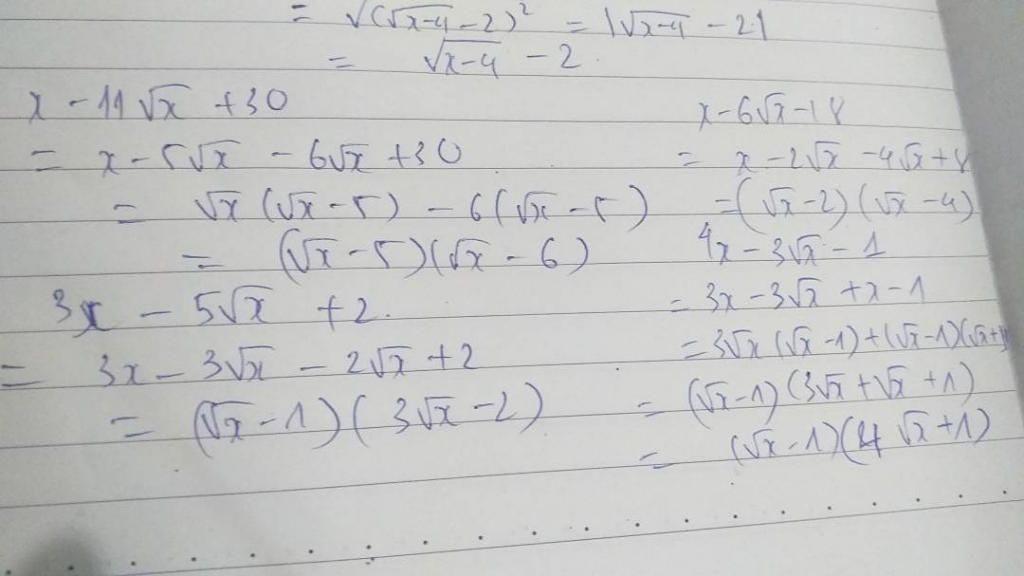 = √(√x-4 - 2)² = |√x-4 - 2|
= √x-4 - 2
x - 11√x + 30
= x - 5√x - 6√x + 30
= √x (√x - 5) - 6(√x - 5)
= (√x - 5)(√x - 6)
3x - 5√x + 2.
= 3x - 3√x - 2√x + 2
= (√x - 1)(3√x - 2)
x - 6√x - 18
= x - 2√x - 4√x + 8
= (√x - 2)(√x - 4)
4x - 3√x - 1
= 3x - 3√x + x - 1
= 3√x (√x - 1) + (√x - 1)(√x + 1)
= (√x - 1)(3√x + √x + 1)
= (√x - 1)(4√x + 1)